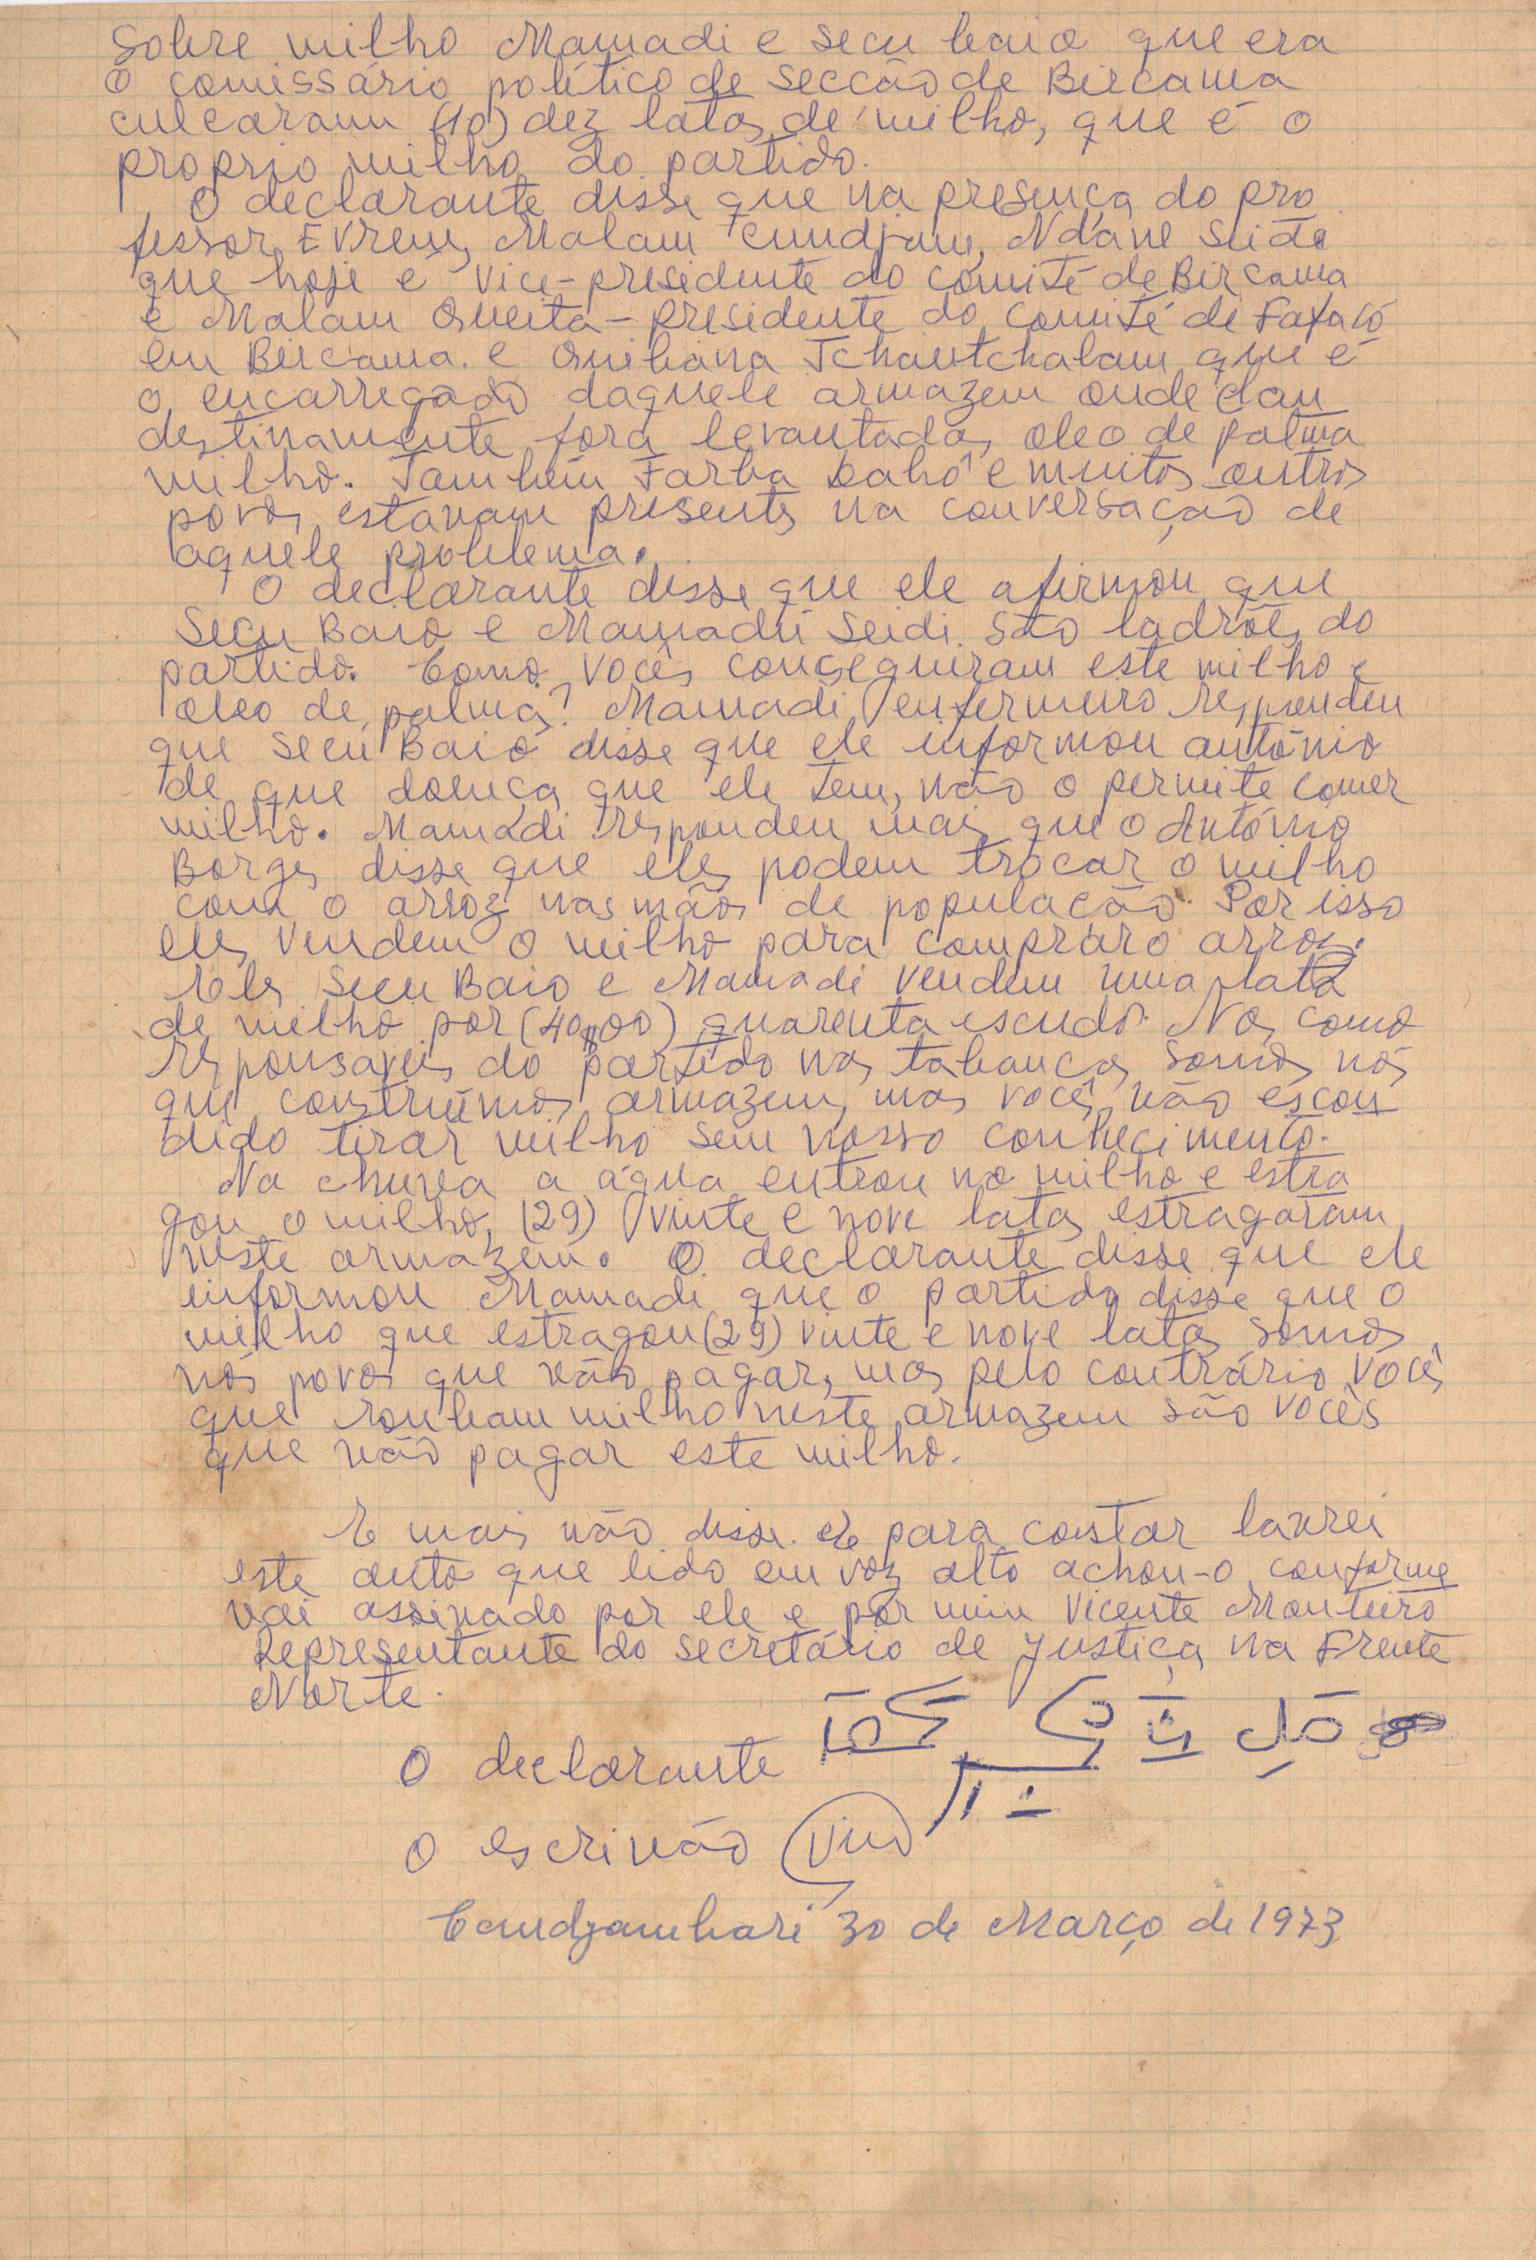 Sobre milho Mamadi e Secu baio que era
o comissário político de Secção de Bircama
culcaram (10) dez latas de milho, que é o
proprio milho do partido.
O declarante disse que na presença do pro
fessor, Evrem, Malam Cundjam, N'dane Seide
que hoje é Vice-presidente do comité de Bircama
e Malam Queita - presidente do comité de Fatacó
em Bircama. e Quibana Tchantchalam que é
o encarregado daquele armazem onde clan
destinamente fora levantados oleo de palma
milho. Também Farba Dahó e muitos outros
povos estavam presentes na conversação de
aquele problema.
O declarante disse que ele afirmou que
Secu Baio e Mamadú Seidi são ladrões do
partido. Como vocês conseguiram este milho e
oleo de palma? Mamadi enfermeiro respondeu
que Secu Baio disse que ele informou antónio
de que doença que ele tem, não o permite comer
milho. Mamadi respondeu mais que o António
Borges disse que eles podem trocar o milho
com o arroz nas mãos de população. Por isso
eles vendem o milho para comprar o arroz.
Eles Secu Baio e Mamadi vendem uma lata
de milho por (40$00) quarenta escudos. Nos como
responsaveis do partido nas tabancas somos nós
que construimos armazem, mas vocês vão escon
dido tirar milho sem nosso conhecimento.
Na chuva a água entrou no milho e estra
gou o milho, (29) vinte e nove latas estragaram
neste armazem. O declarante disse que ele
informou Mamadi que o partido disse que o
milho que estragou (29) vinte e nove latas somos
nós povos que vão pagar, mas pelo contrário vocês
que roubam milho neste armazem são vocês
que vão pagar este milho.
E mais não disse. E para costar lavrei
este auto que lido em voz alto achou-o conforme
vai assinado por ele e por mim Vicente Monteiro
Representante do Secretário de Justiça na Frente
Norte.
O declarante
O escrivão
Candjambari 30 de Março de 1973